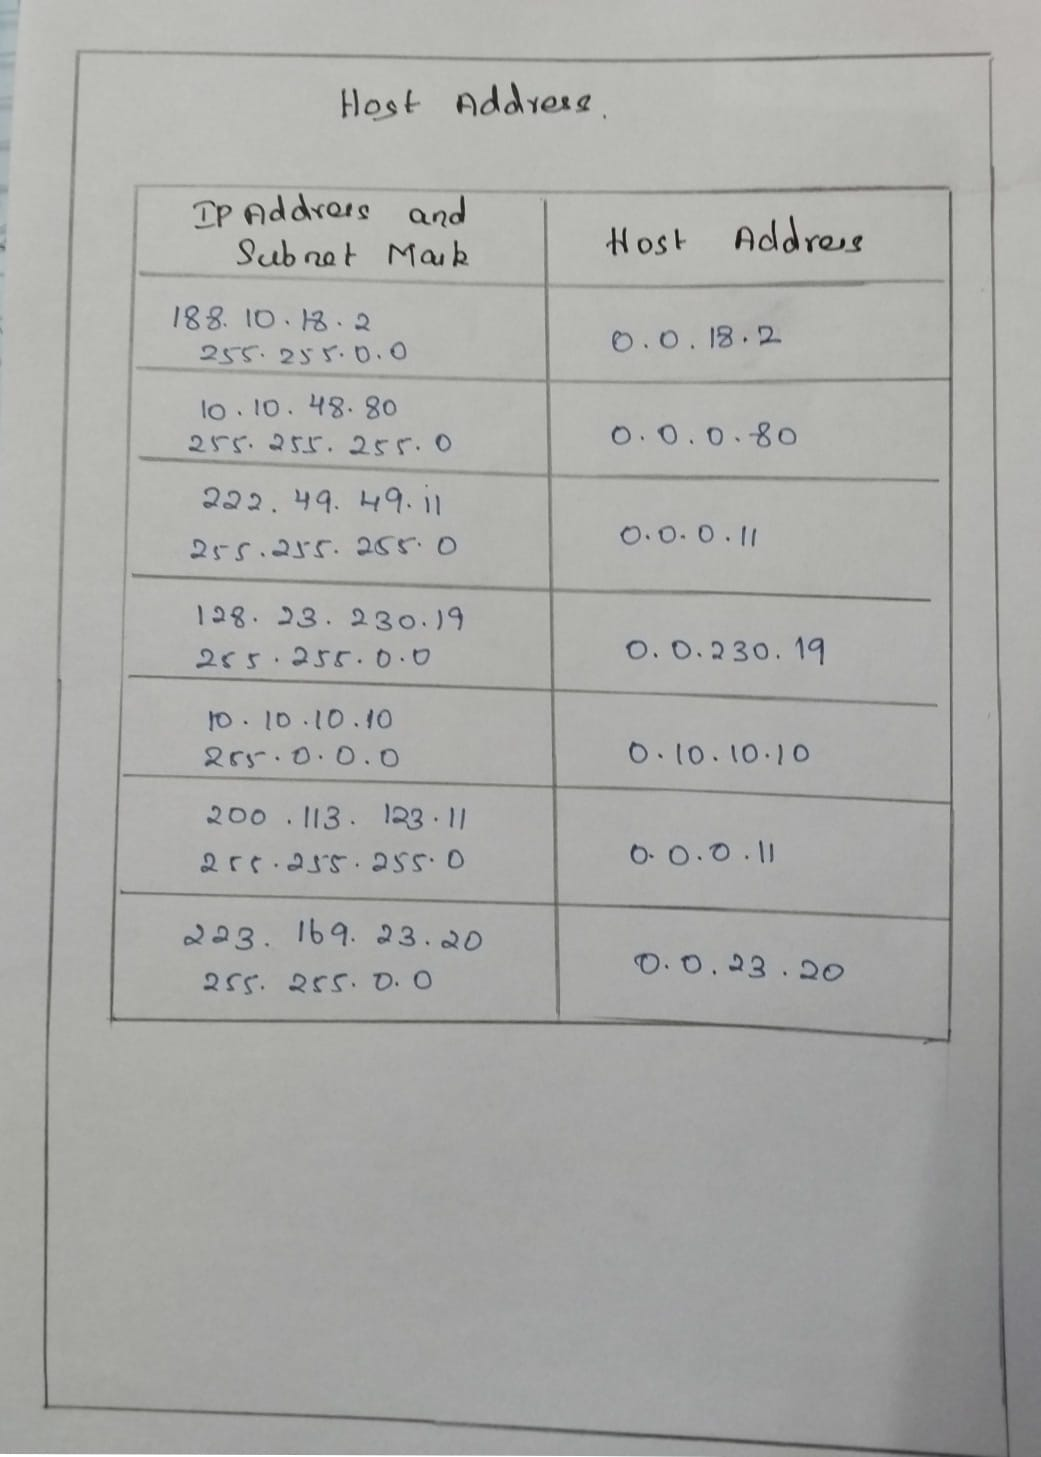 Host Address.
IP Address and
Subnet Mask
Host Address
188.10.18.2
255.255.0.0
0.0.18.2
10.10.48.80
255.255.255.0
0.0.0.80
222.49.49.11
255.255.255.0
0.0.0.11
128.23.230.19
255.255.0.0
0.0.230.19
10.10.10.10
255.0.0.0
0.10.10.10
200.113.123.11
255.255.255.0
0.0.0.11
223.169.23.20
255.255.0.0
0.0.23.20